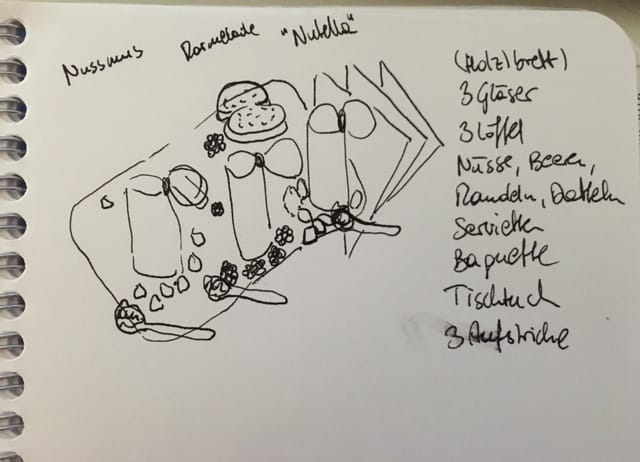 Nussmus Marmelade "Nutella"
(Holz)brett)
3 Gläser
3 Löffel
Nüsse, Beeren,
Mandeln, Datteln
Servietten
Baguette
Tischtuch
3 Aufstriche